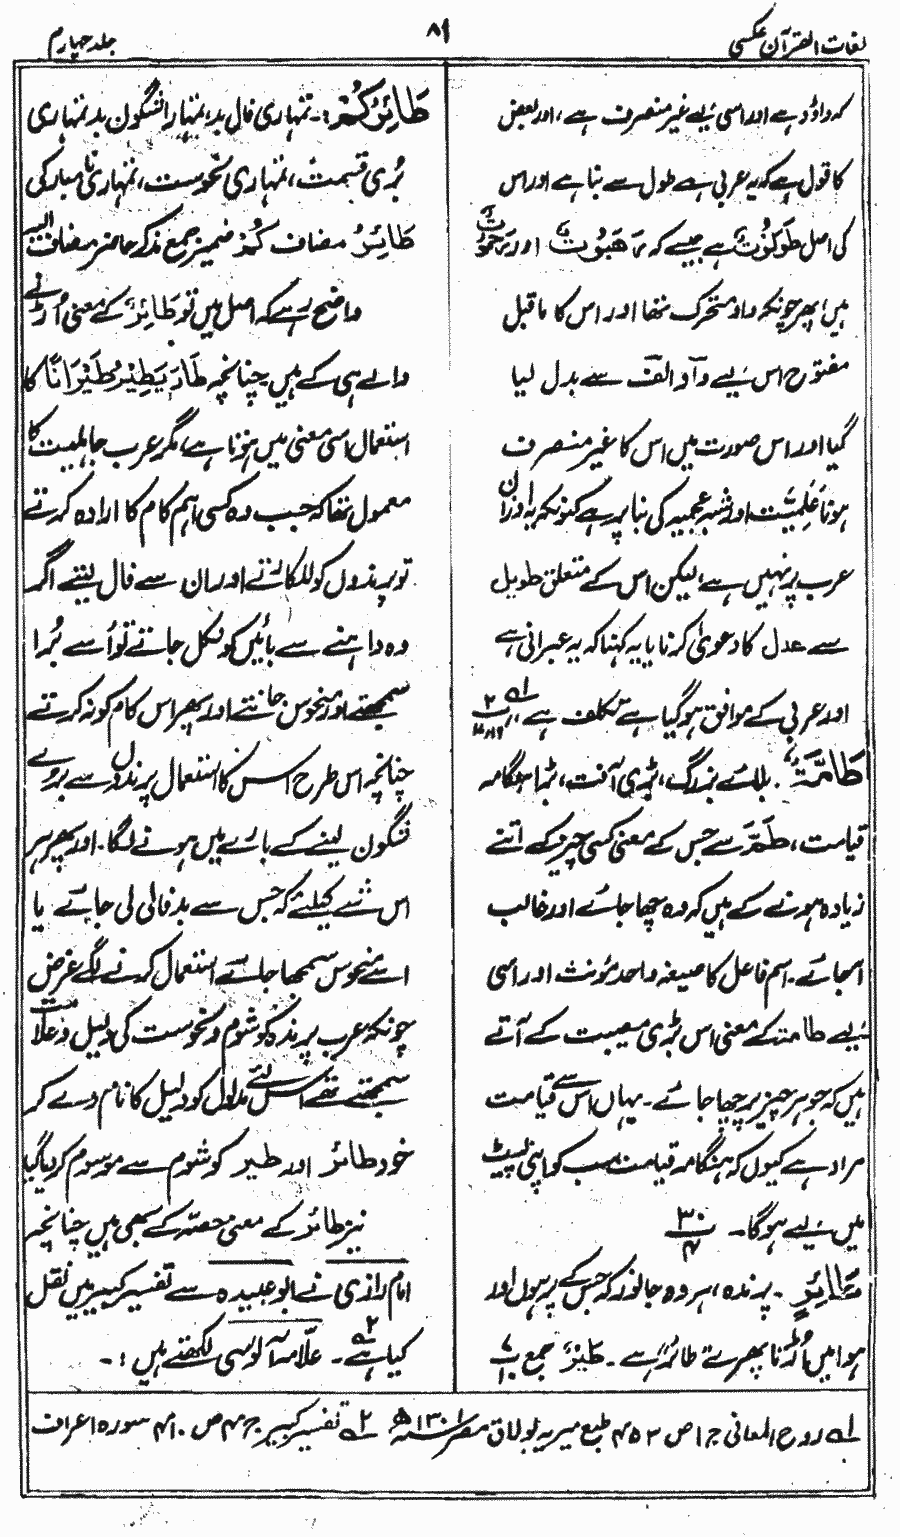 لغات القرآن عکسی
۸۹
جلد چہارم
کہ داؤد ہے اور اسی لیے غیر منصرف ہے، اور بعض
کا قول ہے کہ یہ عربی ہے طول سے بنا ہے اور اس
کی اصل طَوَلُوْتٌ ہے جیسے کہ رَھَبُوْتٌ اور رَحَمُوْتٌ
ہیں؛ پھر چونکہ واو متحرک تھا اور اس کا ماقبل
مفتوح اس لیے واو الف سے بدل لیا
گیا اور اس صورت میں اس کا غیر منصرف
ہونا عَلَمِیَّت اور شبہ عجمیہ کی بنا پر ہے کیونکہ یہ اوزان
عرب پر نہیں ہے، لیکن اس کے متعلق طویل
سے عدل کا دعویٰ کرنا یا یہ کہنا کہ یہ عبرانی ہے
اور عربی کے موافق ہو گیا ہے تکلف ہے لہ ۲
طَامَّۃُ۔ بلائے بزرگ، بڑی آفت، بڑا ہنگامہ
قیامت، طَمٌّ سے جس کے معنی کسی چیز کے اتنے
زیادہ ہونے کے ہیں کہ وہ چھا جائے اور غالب
آجائے۔ اسم فاعل کا صیغہ واحد مؤنث اور اسی
لیے طامۃ کے معنی اس بڑی مصیبت کے آتے
ہیں کہ جو ہر چیز پر چھا جائے۔ یہاں اس سے قیامت
مراد ہے کیوں کہ ہنگامہ قیامت سب کو اپنی لپیٹ
میں لیے ہوگا۔ ۳۰
طَائِرٍ۔ پرندہ، ہر وہ جانور کہ جس کے پر ہوں اور
ہوا میں اُڑتا پھرے طائر ہے۔ طَیْرٌ جمع
طَائِرُکُمْ:۔ تمہاری فال بد، تمہارا شگون بد، تمہاری
بُری قسمت، تمہاری نحوست، تمہاری نامبارکی
طَائِرُ مضاف کُمْ ضمیر جمع مذکر حاضر مضاف الیہ
واضح رہے کہ اصل میں تو طَائِرٌ کے معنی اُڑنے
والے ہی کے ہیں چنانچہ طَارَ یَطِیْرُ طَیْرَانًا کا
استعمال اسی معنی میں ہوتا ہے، مگر عرب جاہلیت کا
معمول تھا کہ جب وہ کسی اہم کام کا ارادہ کرتے
تو پرندوں کو للکارتے اور ان سے فال لیتے اگر
وہ داہنے سے بائیں کو نکل جاتے تو اُسے بُرا
سمجھتے اور منحوس جانتے اور پھر اس کام کو نہ کرتے
چنانچہ اس طرح اس کا استعمال پرندوں سے بُرے
شگون لینے کے بارے میں ہونے لگا۔ اور پھر ہر
اس شے کیلئے کہ جس سے بد فالی لی جائے یا
اسے منحوس سمجھا جائے استعمال کرنے لگے غرض
چونکہ عرب پرندہ کو شوم و نحوست کی دلیل و علامت
سمجھتے تھے اس لئے مدلول کو دلیل کا نام دے کر
خود طائر اور طیر کو شوم سے موسوم کر دیا گیا
نیز طائر کے معنی حصّہ کے بھی ہیں چنانچہ
امام رازی نے ابو عبیدہ سے تفسیر کبیر میں نقل
کیا ہے۔ ۲ علامہ آلوسی لکھتے ہیں:۔
لہ روح المعانی ج ۱ ص ۴۵۲ طبع میریہ بولاق مصر ۱۳۰۱ھ ۲ تفسیر کبیر ج ۴ ص ۴۱۰ سورہ اعراف